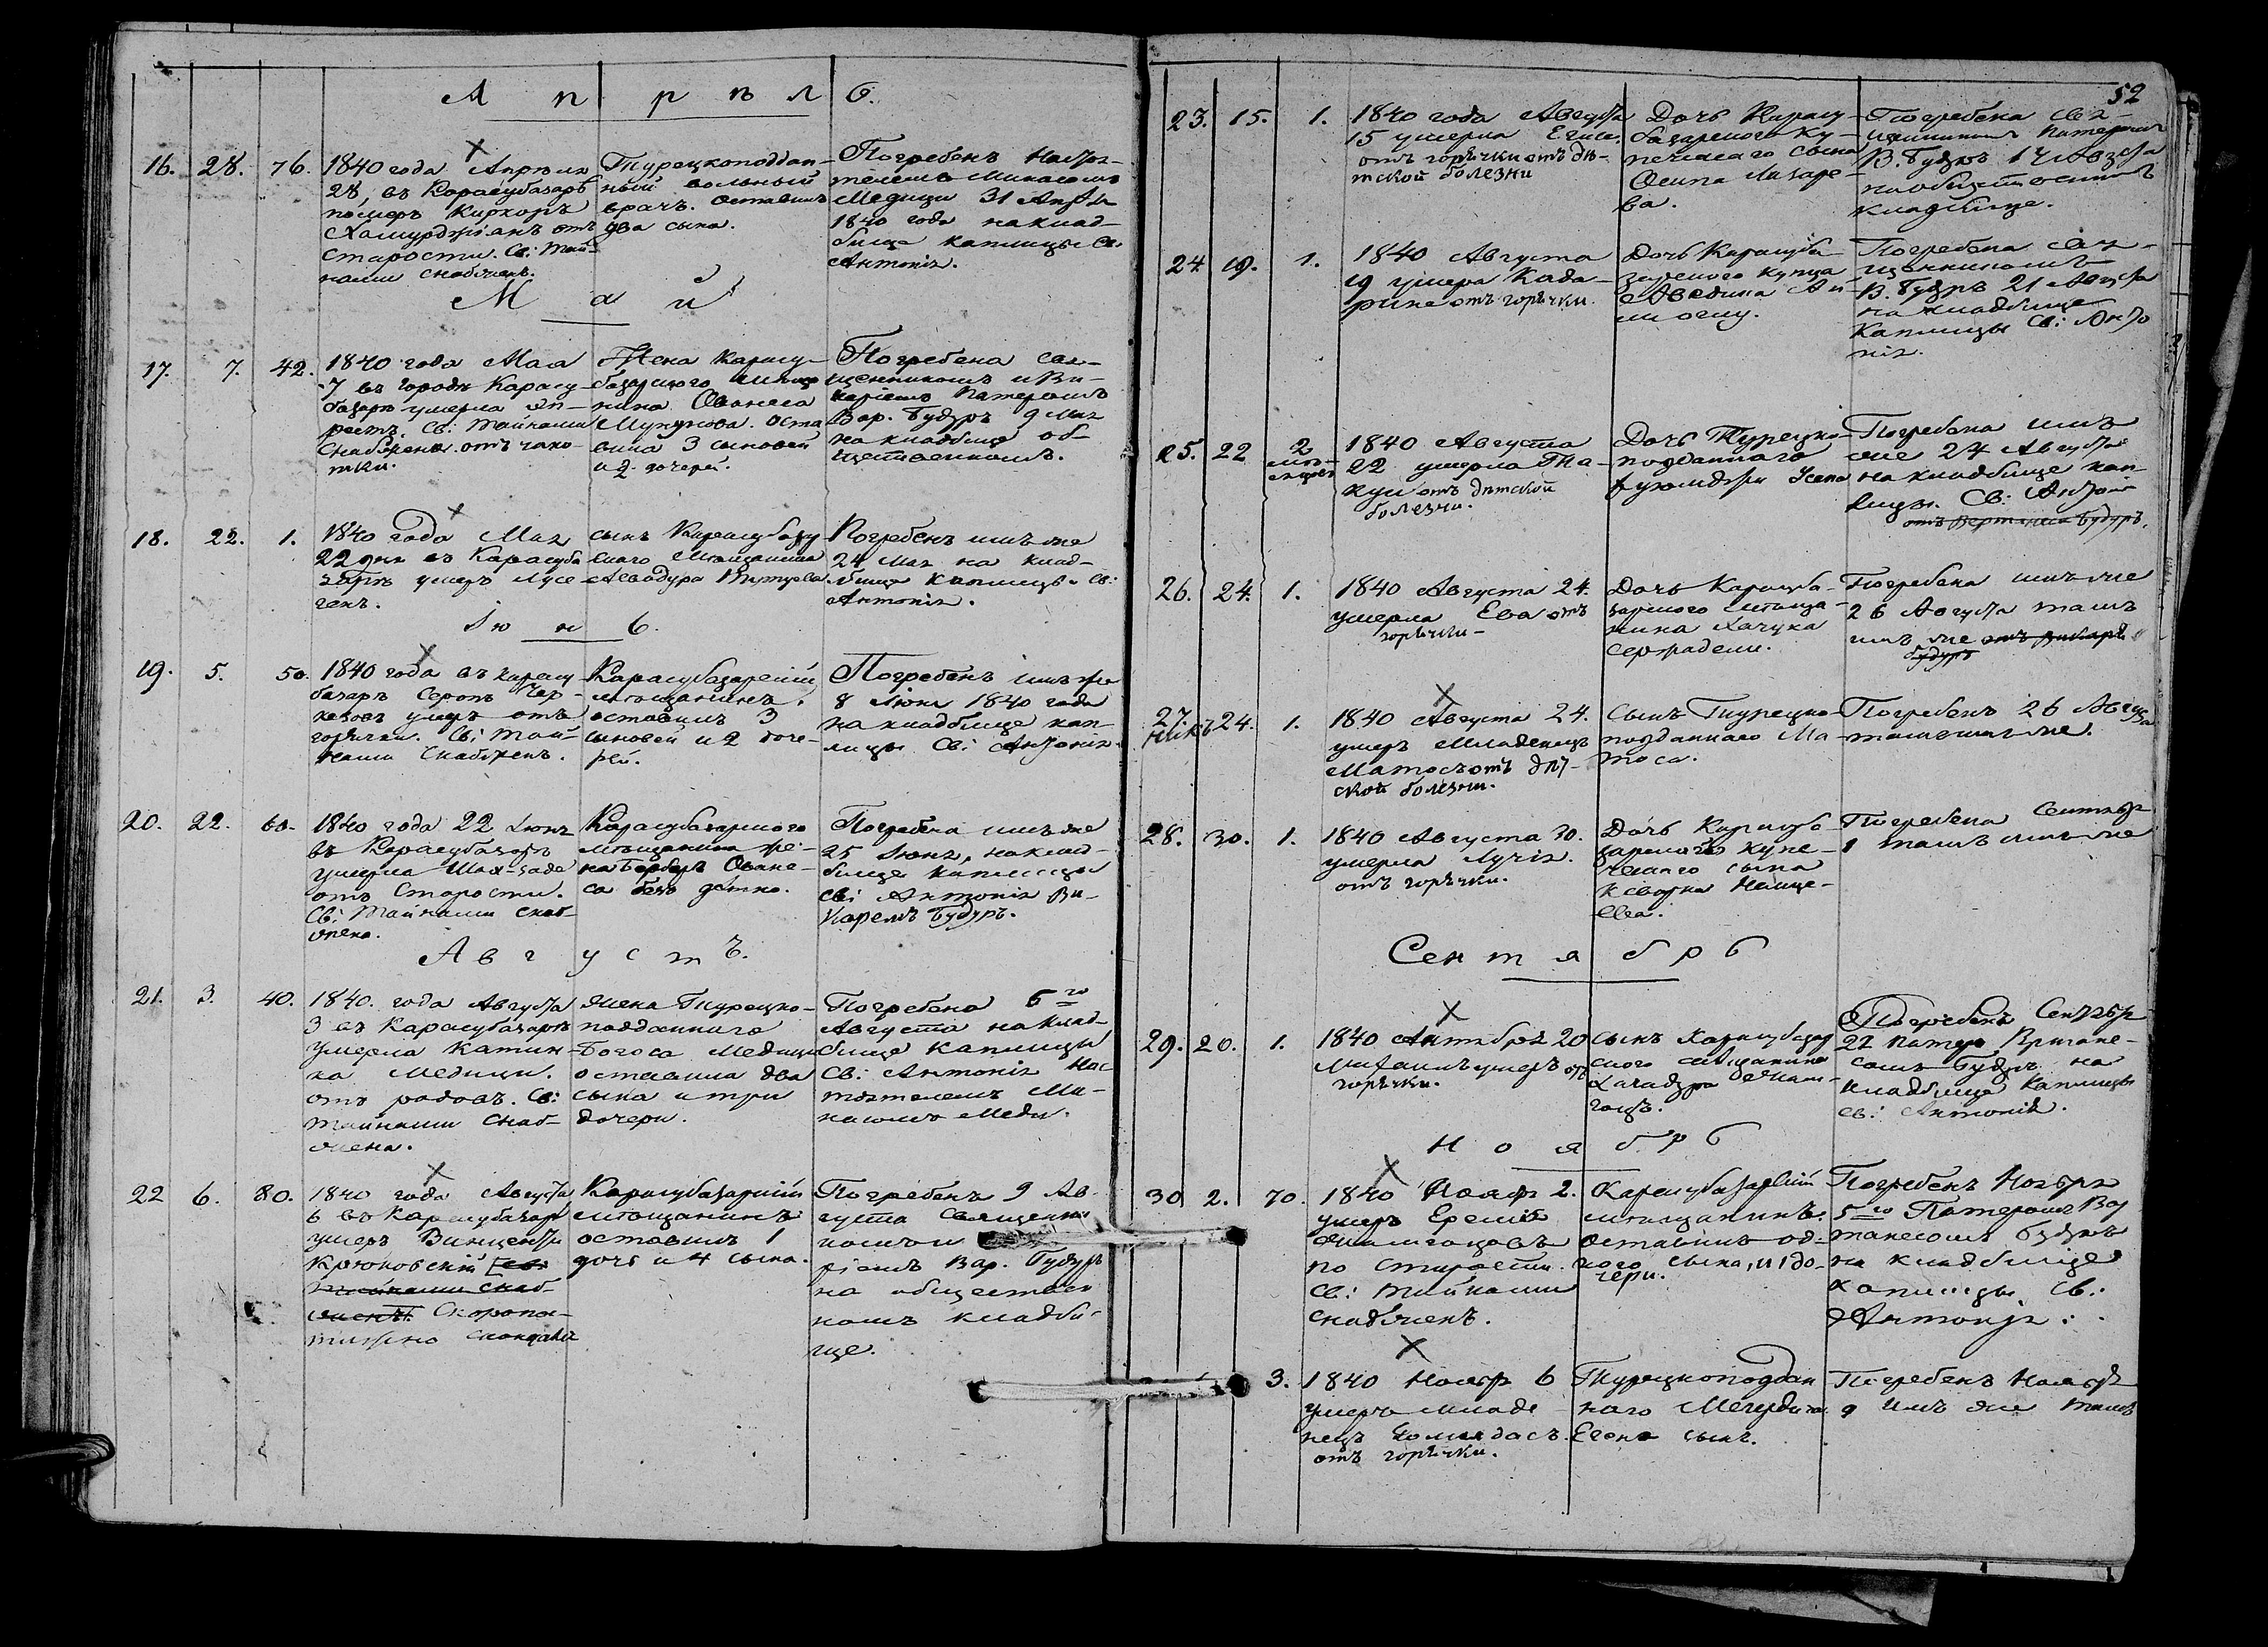 Апрѣль.
16. 28. 76.
1840 года Апрѣля
28, въ Карасубазарѣ
померъ Киркоръ
Хамурджіанъ отъ
старости. Св: Тай-
нами снабженъ.
Турецкоподдан-
ный вольный
врачъ. оставилъ
два сына.
Погребенъ Насто-
телемъ Минасомъ
Медици 31 Апрѣля
1840 года на клад-
бище каплицы Св.
Антонія.
Май
17. 7. 42.
1840 года Мая
7 въ городѣ Карасу-
базарѣ умерла
Св: Тайнами
снабжена отъ чахо-
тки.
Жена Карасу-
базарскаго мѣща
нина Ованеса
Оста
вила 3 сыновей
и 2 дочерей.
Погребена свя-
щенникомъ и Ви-
каріемъ Патеромъ
Вар. Будуръ 9 Мая
на кладбище об-
щественномъ.
18. 22. 1.
1840 года Мая
22 дня въ Карасуба
зарѣ умеръ Лусе
генъ.
сынъ Карасубазар
скаго мѣщанина
Асвадура
Погребенъ имъ же
24 Мая на клад-
бище каплицы Св:
Антонія.
Іюнь.
19. 5. 50.
1840 года въ Карасу
базарѣ Серопъ Чер-
кезовъ умеръ отъ
горячки. Св: Тай-
нами снабженъ.
Карасубазарскій
мѣщанинъ.
оставилъ 3
сыновей и 2 доче-
рей.
Погребенъ имъ же
8 Іюня 1840 года
на кладбище кап-
лицы Св: Антонія.
20. 22. 60.
1840 года 22 Іюня
въ Карасубазарѣ
умерла Шах-заде
отъ Старости.
Св: Тайнами снаб-
жена.
Карасубазарскаго
мѣщанина же-
на Бербера Оване-
са безъ дѣтна.
Погребена имъ же
25 Іюня, на клад-
бище каплицы
Св: Антонія Ви-
каремъ Будуръ.
Августъ.
21. 3. 40.
1840. года Августа
3 въ Карасубазарѣ
умерла Катин-
ка Медици.
отъ родовъ. Св:
Тайнами Снаб-
жена.
жена Турецко-
подданнаго
Богоса Медици
оставила два
сына и три
дочери.
Погребена 6го
Августа на клад-
бище Каплицы
Св: Антонія Нас
тоятелемъ Ми-
насомъ Меди.
22 6. 80.
1840 года Августа
6 въ Карасубазарѣ
умеръ Винцентій
Крюковскій [Св:
Тайнами снаб-
женъ. Скоропо-
стижно скончался
Карасубазарскій
мѣщанинъ
оставилъ 1
дочь и 4 сына.
Погребенъ 9 Ав-
густа Священни
комъ и
ріемъ Вар. Будуръ
на обществен
номъ кладби-
ще.
52
23. 15. 1.
1840 года Августа
15 умерла Егиса.
отъ горячки отъ дѣ-
тской болезни
Дочь Карасу-
базарскаго Ку-
печескаго сына
Осипа Лазаре-
ва.
Погребена свя-
щенникомъ патеромъ
В. Будуръ 17 Августа
на общественномъ
кладбище.
24 19. 1.
1840 Августа
19 умерла Када-
рине отъ горячки.
Дочь Карасуба-
зарскаго купца
Аведика
Погребена свя-
щенникомъ
В. Будуръ 21 Августа
на кладбище
Каплицы Св: Анто
нія.
25. 22 2 мѣ-
сяцевъ
1840 Августа
22 умерла
отъ дѣтской
болезни.
Дочь Турецко-
подданнаго
Погребена имъ
же 24 Августа
на кладбище кап-
лицы Св: Антоні
отъ Вертанеса Будуръ.
26. 24. 1.
1840 Августа 24.
умерла Ева отъ
горячки-
Дочь Карасуба-
зарскаго мѣща-
нина Хачука
Погребена имъ же
26 Августа тамъ
имъ же отъ викарія
Будуръ
27. 24. 1.
1840 Августа 24.
умеръ Младенецъ
Матосъ отъ дѣт-
ской болезни.
Сынъ Турецко-
подданнаго Ма-
тоса.
Погребенъ 26 Августа
тамъ имъ же.
28. 30. 1.
1840 Августа 30.
умерла Лучія.
отъ горячки.
Дочь Карасуба-
зарскаго купе-
ческаго сына
Кеворка
Погребена Сентября
1 тамъ имъ же
Сентябрь
29. 20. 1.
1840 20
Михаилъ умеръ отъ
горячки.
Сынъ Карасубазар
скаго мѣщанина
Хачадура
Погребенъ Сентября
22 патеръ Вртане-
сомъ Будуръ на
кладбище Каплицы
Св: Антонія.
Ноябрь
30 2. 70.
1840 Ноября 2.
умеръ Еремія
по старости.
Св: Тайнами
снабженъ.
Карасубазарскій
мѣщанинъ.
оставилъ од-
ного сына, и 1 до-
чери.
Погребенъ Ноября
5го Патеромъ Вар
танесомъ Будуръ
на кладбище
Каплицы Св:
Антонія.
3.
1840 Ноября 6
умеръ младе
нецъ Комидасъ.
отъ горячки.
Турецкоподдан
наго
сынъ.
Погребенъ Ноября
9 имъ же тамъ